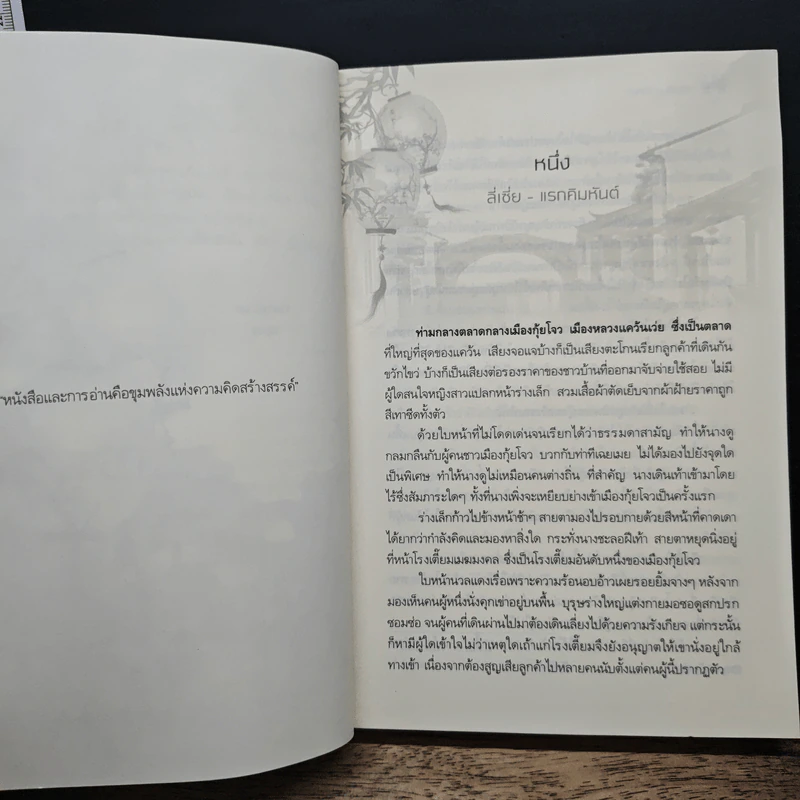 "หนังสือและการอ่านคือขุมพลังแห่งความคิดสร้างสรรค์"
หนึ่ง
ลี่เซี่ย - แรกคิมหันต์
ท่ามกลางตลาดกลางเมืองกุ้ยโจว เมืองหลวงแคว้นเว่ย ซึ่งเป็นตลาด
ที่ใหญ่ที่สุดของแคว้น เสียงจอแจบ้างก็เป็นเสียงตะโกนเรียกลูกค้าที่เดินกัน
ขวักไขว่ บ้างก็เป็นเสียงต่อรองราคาของชาวบ้านที่ออกมาจับจ่ายใช้สอย ไม่มี
ผู้ใดสนใจหญิงสาวแปลกหน้าร่างเล็ก สวมเสื้อผ้าตัดเย็บจากผ้าฝ้ายราคาถูก
สีเทาซีดทั้งตัว
ด้วยใบหน้าที่ไม่โดดเด่นจนเรียกได้ว่าธรรมดาสามัญ ทำให้นางดู
กลมกลืนกับผู้คนชาวเมืองกุ้ยโจว บวกกับท่าทีเฉยเมย ไม่ได้มองไปยังจุดใด
เป็นพิเศษ ทำให้นางดูไม่เหมือนคนต่างถิ่น ที่สำคัญ นางเดินเท้าเข้ามาโดย
ไร้ซึ่งสัมภาระใดๆ ทั้งที่นางเพิ่งจะเหยียบย่างเข้าเมืองกุ้ยโจวเป็นครั้งแรก
ร่างเล็กก้าวไปข้างหน้าช้าๆ สายตามองไปรอบกายด้วยสีหน้าที่คาดเดา
ได้ยากว่ากำลังคิดและมองหาสิ่งใด กระทั่งนางชะลอฝีเท้า สายตาหยุดนิ่งอยู่
ที่หน้าโรงเตี๊ยมเมฆมงคล ซึ่งเป็นโรงเตี๊ยมอันดับหนึ่งของเมืองกุ้ยโจว
ใบหน้านวลแดงเรื่อเพราะความร้อนอบอ้าวเผยรอยยิ้มจางๆ หลังจาก
มองเห็นคนผู้หนึ่งนั่งคุกเข่าอยู่บนพื้น บุรุษร่างใหญ่แต่งกายมอซอดูสกปรก
ซอมซ่อ จนผู้คนที่เดินผ่านไปมาต้องเดินเลี่ยงไปด้วยความรังเกียจ แต่กระนั้น
ก็หามีผู้ใดเข้าใจไม่ว่าเหตุใดเถ้าแก่โรงเตี๊ยมจึงยังอนุญาตให้เขานั่งอยู่ใกล้
ทางเข้า เนื่องจากต้องสูญเสียลูกค้าไปหลายคนนับตั้งแต่คนผู้นี้ปรากฏตัว